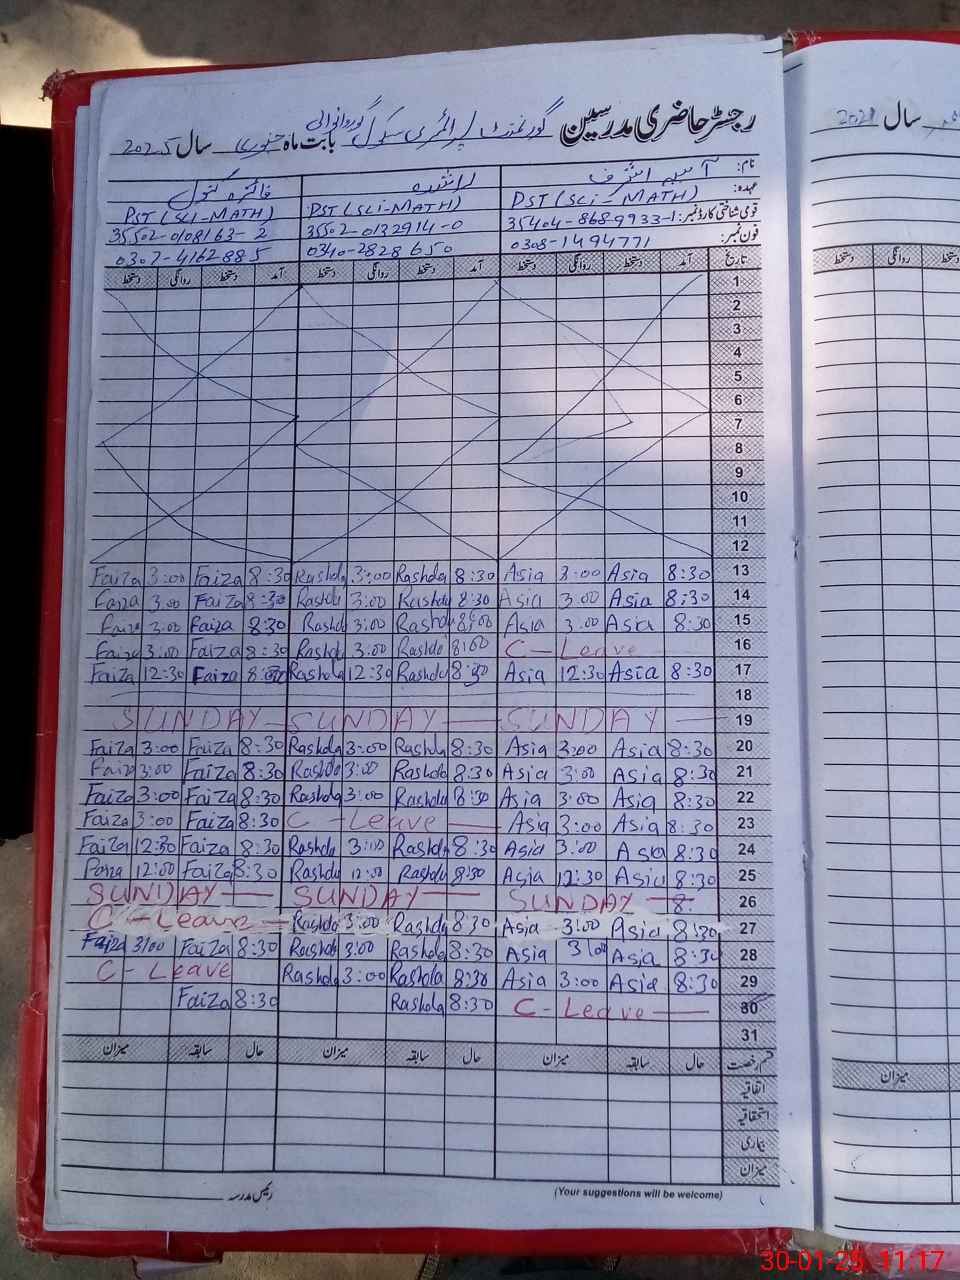 رجسٹر حاضری مدرسین گورنمنٹ پرائمری سکول بابت ماہ جنوری سال 2025
سال 2021
نام: آسیہ اشرف راشدہ فائزہ کنول
عہدہ: PST (SCI-MATH) PST (SCI-MATH) PST (SCI-MATH)
قومی شناختی کارڈ نمبر: 35404-8689933-1 35502-0132914-0 35502-0108163-2
فون نمبر: 0308-1494771 0340-2828650 0307-4162885
تاریخ آمد دستخط روانگی دستخط آمد دستخط روانگی دستخط آمد دستخط روانگی دستخط
روانگی دستخط
1
2
3
4
5
6
7
8
9
10
11
12
Faiza 3:00 Faiza 8:30 Rashda 3:00 Rashda 8:30 Asia 3:00 Asia 8:30 13
Faiza 3:00 Faiza 8:30 Rashda 3:00 Rashda 8:30 Asia 3:00 Asia 8:30 14
Faiza 3:00 Faiza 8:30 Rashd 3:00 Rashda Asia 3:00 Asia 8:30 15
Faiza 3:00 Faiza 8:30 Rashda 3:00 Rashda C-Leave 16
Faiza 12:30 Faiza Rashda 12:30 Rashda 8:30 Asia 12:30 Asia 8:30 17
18
SUNDAY — SUNDAY — SUNDAY — 19
Faiza 3:00 Faiza 8:30 Rashda 3:00 Rashda 8:30 Asia 3:00 Asia 8:30 20
Faiz 3:00 Faiza 8:30 Rashda 3:00 Rashda 8:30 Asia 3:00 Asia 8:30 21
Faiza 3:00 Faiza 8:30 Rashda 3:00 Rashda 8:30 Asia 3:00 Asia 8:30 22
Faiza 3:00 Faiza 8:30 C-Leave — Asia 3:00 Asia 8:30 23
Faiza 12:30 Faiza 8:30 Rashda 3:00 Rashda 8:30 Asia 3:00 Asia 8:30 24
Faiza 12:00 Faiza 8:30 Rashda 12:00 Rashda 8:30 Asia 12:30 Asia 8:30 25
SUNDAY — SUNDAY — SUNDAY — 8: 26
C-Leave — Rashda 3:00 Rashda 8:30 Asia 3:00 Asia 8:30 27
Faiza 3:00 Faiza 8:30 Rashda 3:00 Rashda 8:30 Asia 3:00 Asia 8:30 28
C-Leave Rashda 3:00 Rashda 8:30 Asia 3:00 Asia 8:30 29
Faiza 8:30 Rashda 8:30 C-Leave — 30
31
قسم رخصت حال سابقہ میزان حال سابقہ میزان حال سابقہ میزان
میزان
اتفاقیہ
استحقاقیہ
بیماری
میزان
رئیس مدرسہ
(Your suggestions will be welcome)
30-01-25 11:17